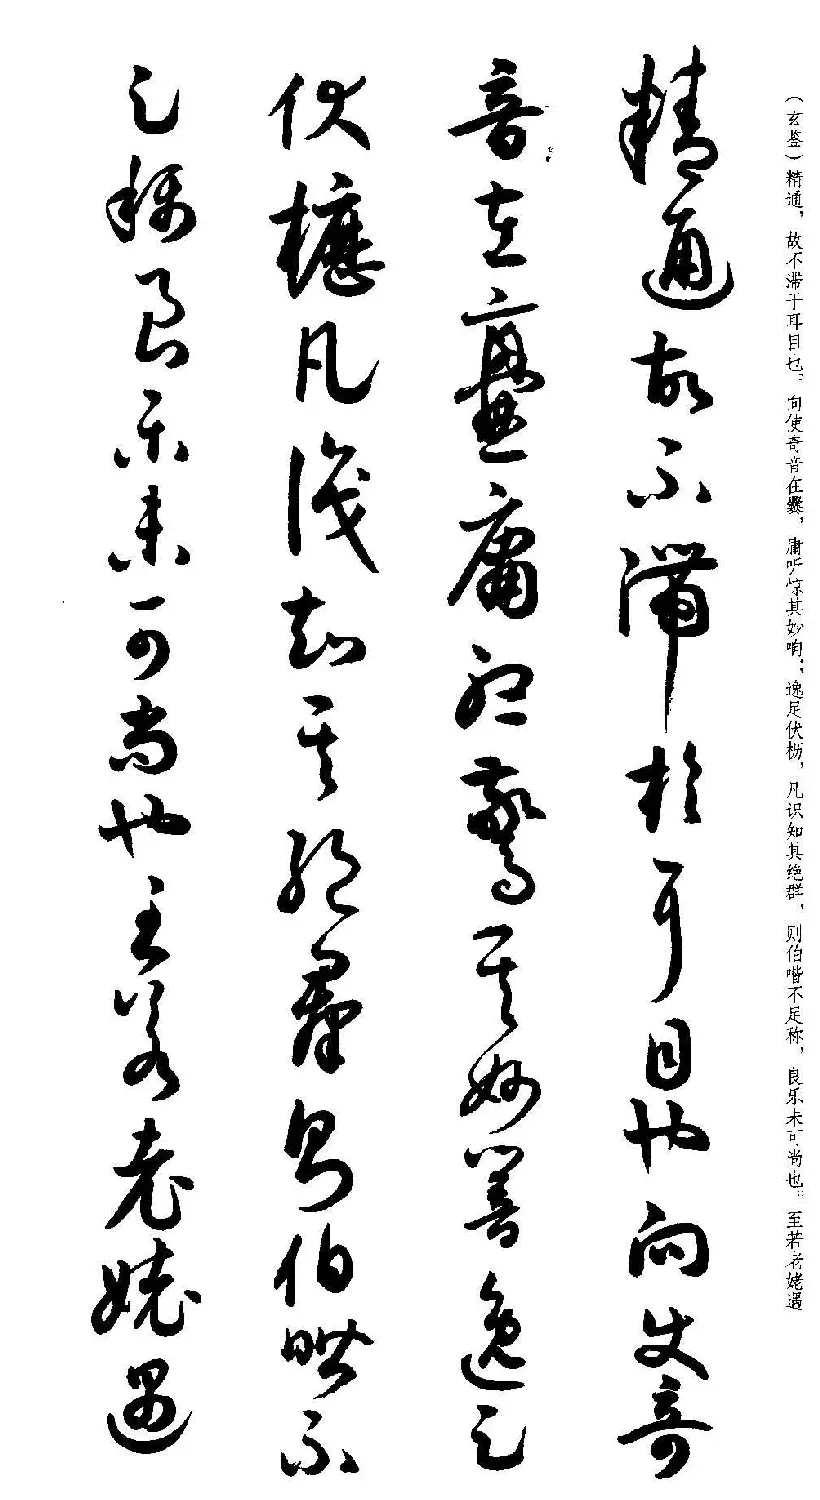 （玄鉴）精通，故不滞于耳目也。向使奇音在爨，庸听惊其妙响；逸足伏枥，凡识知其绝群，则伯喈不足称，良乐未可尚也。至若老姥遇
精通故不滯於耳目也向使奇
音在爨庸聽驚其妙響逸足
伏櫪凡識知其絕羣則伯喈不
足稱良樂未可尚也至若老姥遇